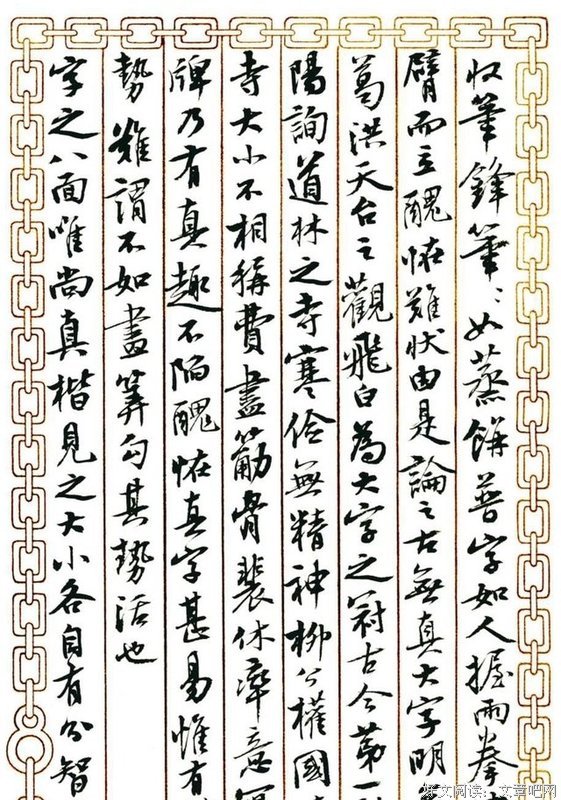 收筆鋒筆〻如蒸餅普字如人握兩拳
臂而立醜恠難狀由是論之古無真大字明
葛洪天台之觀飛白為大字之冠古今第一
陽詢道林之寺寒儉無精神柳公權國
寺大小不相稱費盡筋骨裴休率意寫
牌乃有真趣不陷醜恠真字甚易惟有
勢難謂不如畫筭勾其勢活也
字之八面唯尚真楷見之大小各自有分智
文阅读：文章吧网